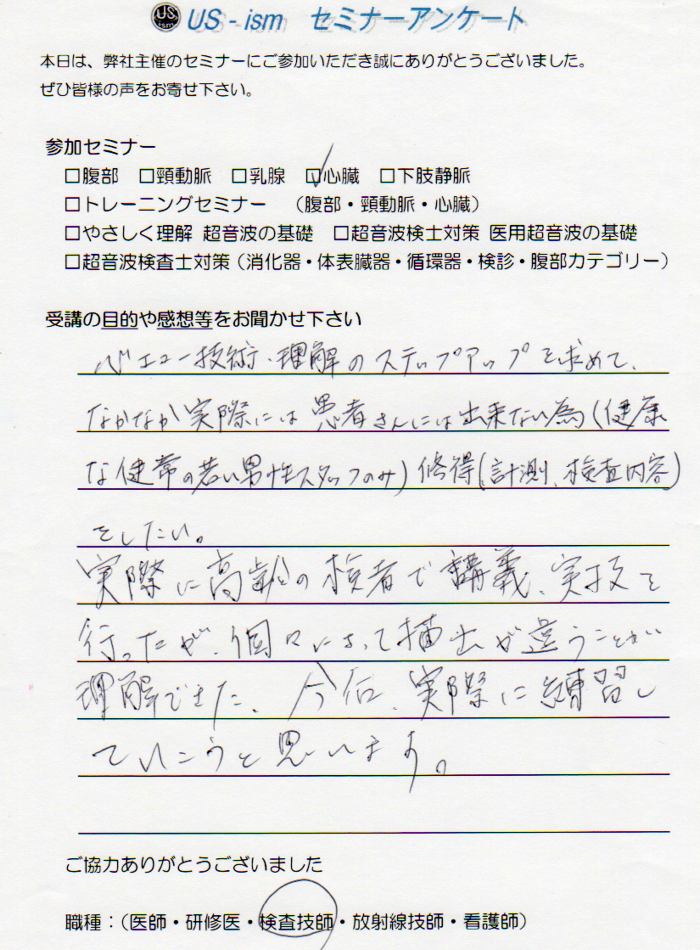 US ism US-ism セミナーアンケート
本日は、弊社主催のセミナーにご参加いただき誠にありがとうございました。
ぜひ皆様の声をお寄せ下さい。
参加セミナー
□腹部 □頸動脈 □乳腺 ☑心臓 □下肢静脈
□トレーニングセミナー （腹部・頸動脈・心臓）
□やさしく理解 超音波の基礎 □超音波検士対策 医用超音波の基礎
□超音波検査士対策（消化器・体表臓器・循環器・検診・腹部カテゴリー）
受講の目的や感想等をお聞かせ下さい
心エコー技術・理解のステップアップを求めて、
なかなか実際には患者さんには出来ない為（健康
な健常の若い男性スタッフのみ）修得（計測、検査内容）
をしたい。
実際に高齢の検者で講義、実技を
行ったが、個々によって描出が違うことが
理解できた、今后、実際に練習し
ていこうと思います。
ご協力ありがとうございました
職種：（医師・研修医・検査技師・放射線技師・看護師）